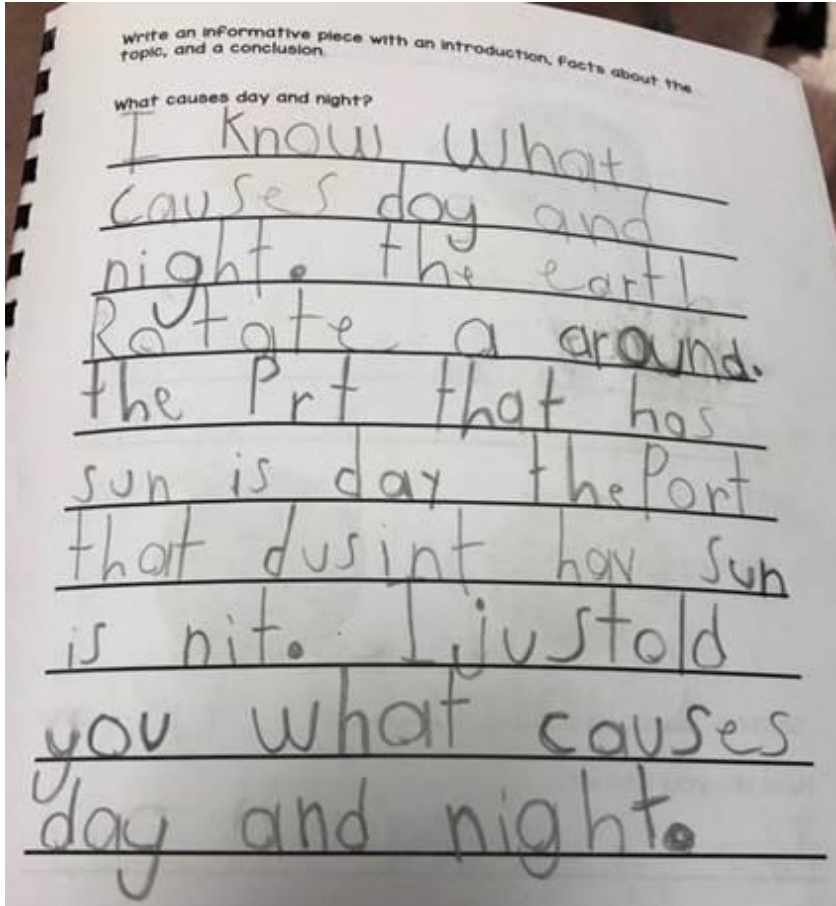 Write an informative piece with an introduction, facts about the
topic, and a conclusion.
What causes day and night?
I know what
causes day and
night. the earth
Rotate a around.
the Prt that has
sun is day the Port
that dusint hav sun
is nit. I justold
you what causes
day and night.